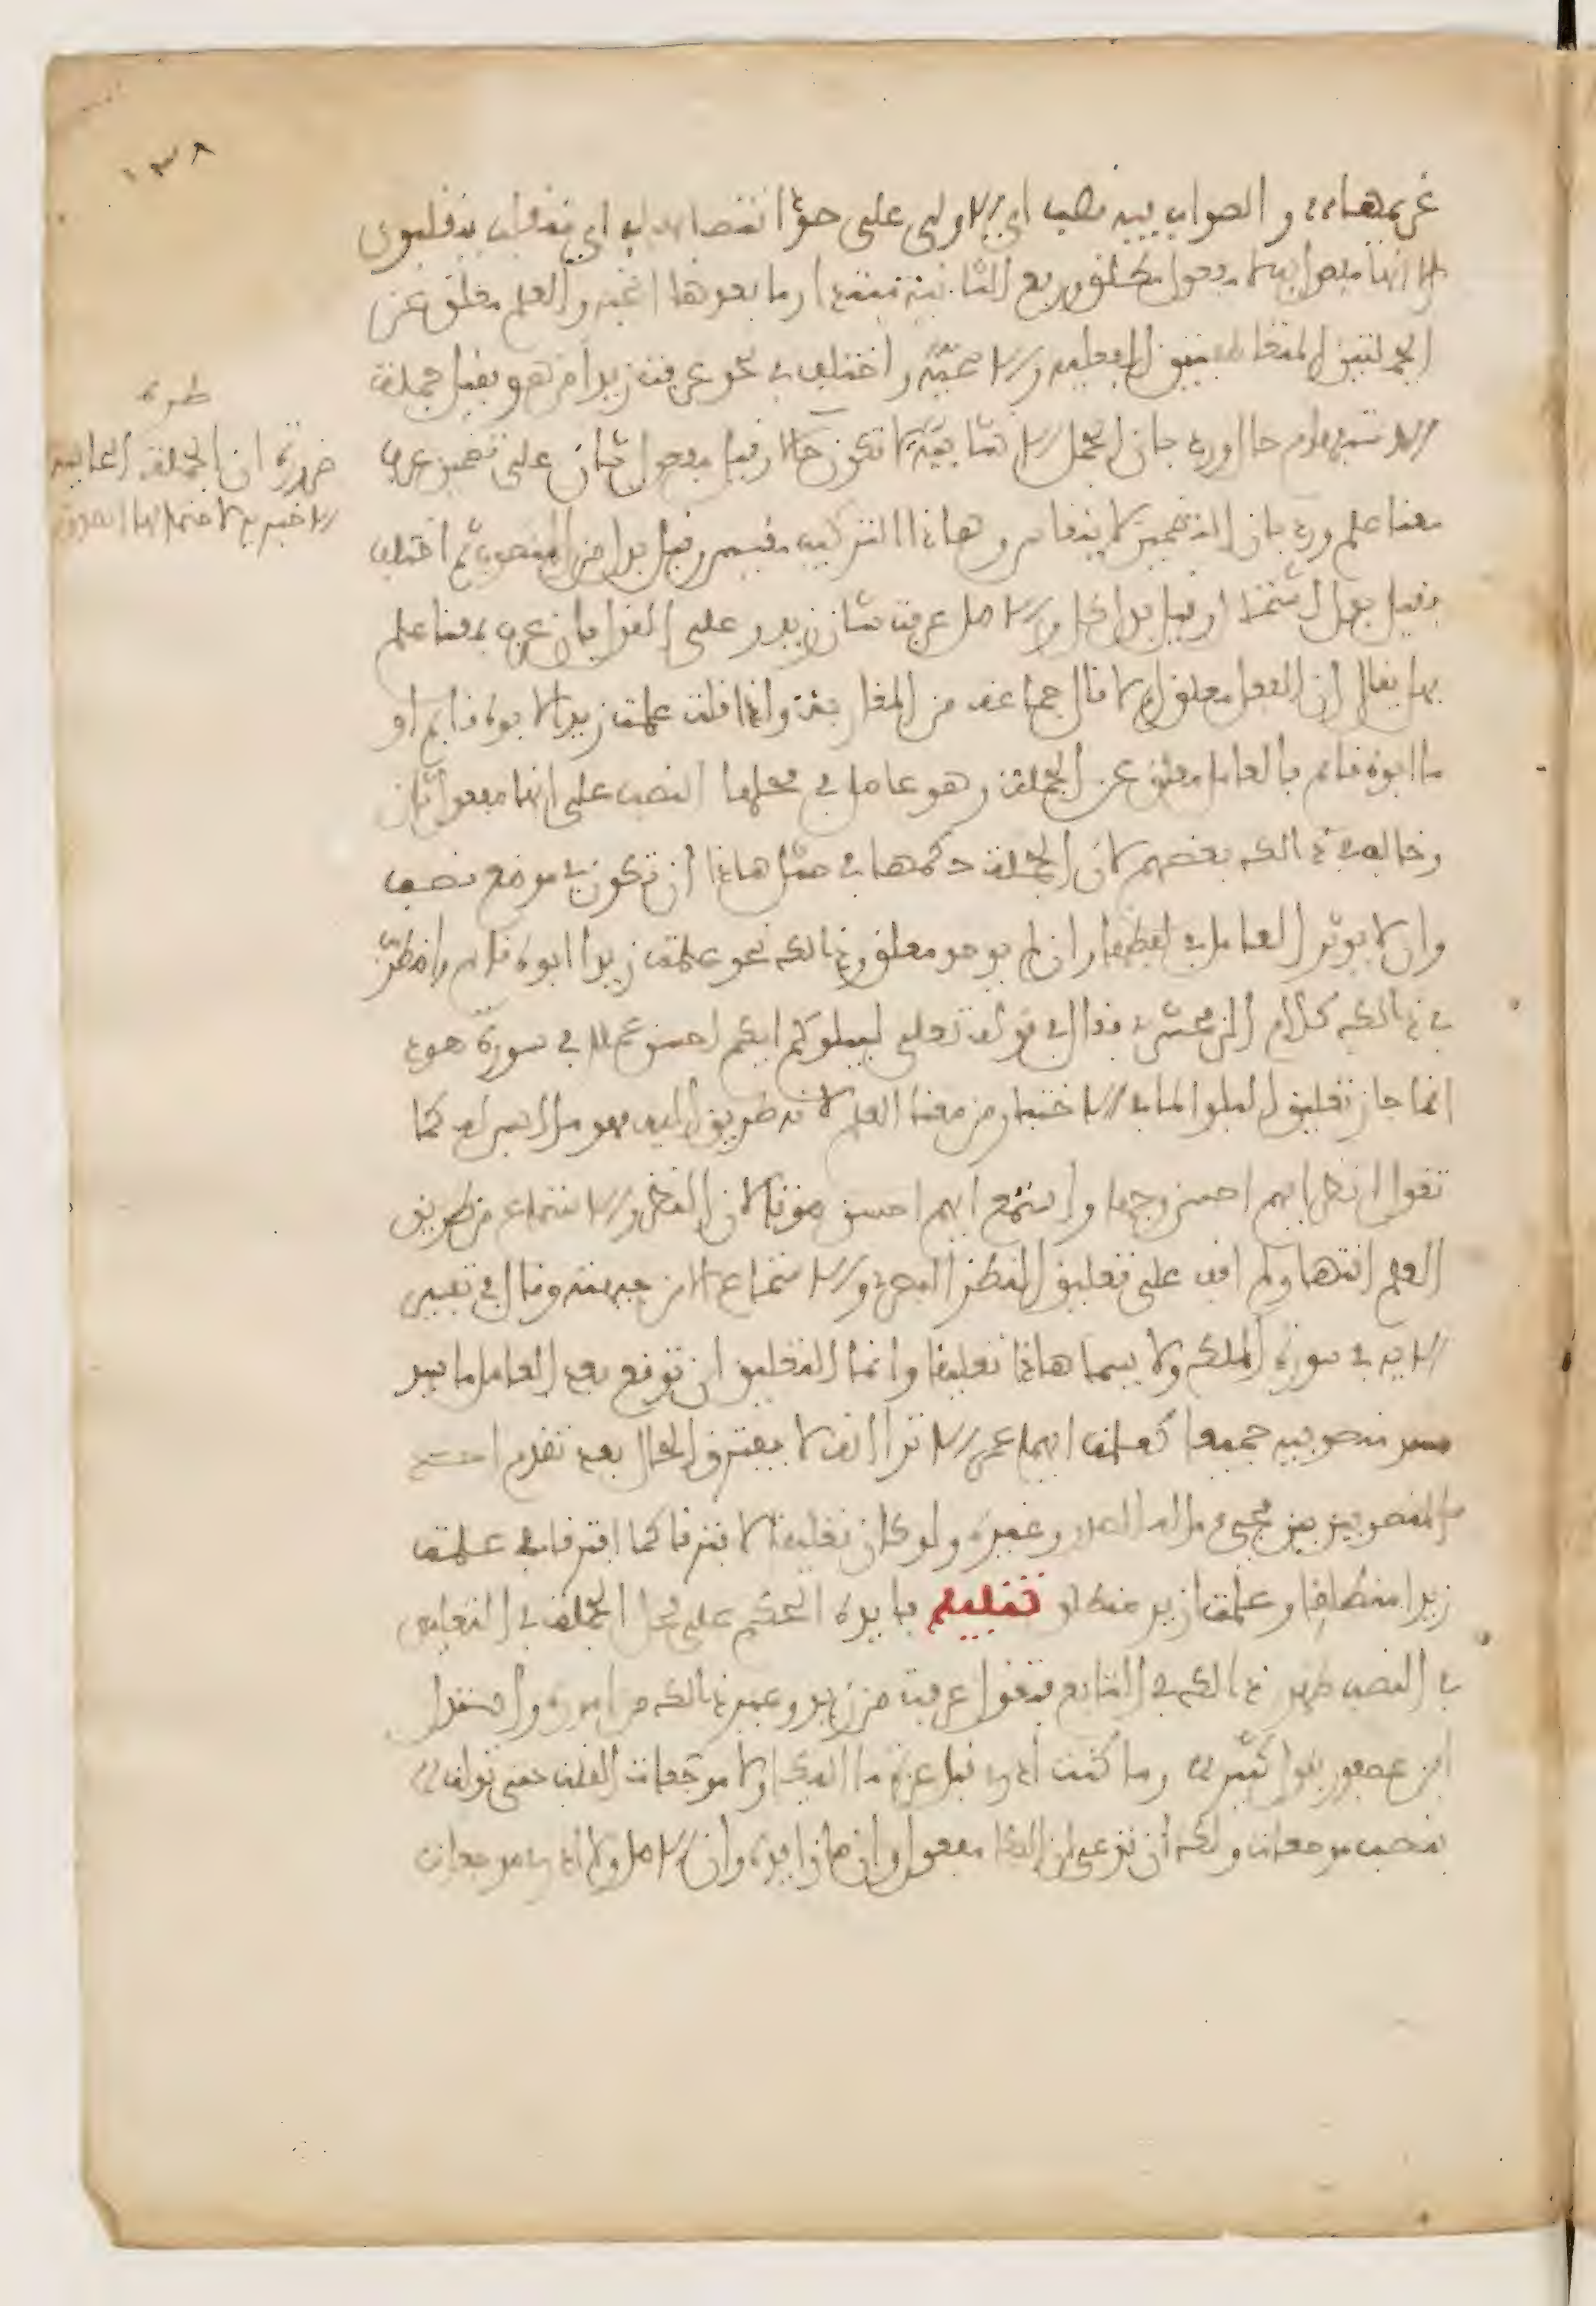 ١٣٨
غريمها، والصواب فيه نصب اي الاولى على حد انتصابها اي منقلب ينقلبون
الا انها مفعول به لا مفعول مطلق ورفع الثانية مبتدا وما بعدها الخبر والعلم معلق عن
الجملتين المتعاطفتين الفعلية والاسمية واختلف في نحو عرفت زيدا من هو فقيل جملة
الاستفهام حال ورد بان الجمل الانشائية لا تكون حالا وقيل مفعول ثان على تضمين عرف
معنا علم ورد بان التضمين لا ينقاس وهاذا التركيب مقيس وقيل بدل من المنصوب ثم اختلف
فقيل بدل اشتمال وقيل بدل كل والاصل عرفت شان زيد وعلى القول بان عرف بمعنا علم
فهل يقال ان الفعل معلق ام لا قال جماعة من المغاربة واذا قلت علمت زيدا لابوه قايم او
ما ابوه قايم فالعامل معلق عن الجملة وهو عامل في محلها النصب على انها مفعول ثان
وخالف في ذالك بعضهم لان الجملة حكمها في مثل هاذا ان تكون في موضع نصب
وان لا يوثر العامل في لفظها وان لم يوجد معلق وذالك نحو علمت زيدا ابوه قايم واضطرب
في ذالك كلام الزمخشري فقال في قوله تعلى ليبلوكم ايكم احسن عملا في سورة هود
انما جاز تعليق البلوا لما في الاختبار من معنا العلم لانه طريق اليه فهو ملابس له كما
تقول انظر ايهم احسن وجها واستمع ايهم احسن صوتا لان النظر والاستماع من طريق
العلم انتها ولم اقف على تعليق النظر البصري والاستماع الا من جهته وقال في تفسير
الايه في سورة الملك ولا يسما هاذا تعليقا وانما التعليق ان توقع بعد العامل ما يسد
مسد منصوبيه جميعا كعلمت ايهما عمرو الا ترا انه لا يفترق الحال بعد تقدم احد
المنصوبين بين مجيء ماله الصدر وغيره ولو كان تعليقا لافترقا كما افترقا في علمت
زيدا منطلقا وعلمت ازيد منطلق تنبيه فايدة الحكم على محل الجملة في التعليق
بالنصب ظهور ذالك في التابع فتقول عرفت من زيد وغير ذالك من اموره واستدل
ابن عصفور بقول كثير وما كنت ادري قبل عزة ما البكا ولا موجعات القلب حتى تولت
بنصب موجعات ولك ان تدعي ان البكا مفعول وان ما زايدة وان الاصل ولا ادري موجعات
طرة
ضرورة ان الجملة الحالية
الاخبريه لاحتمالها الصدق